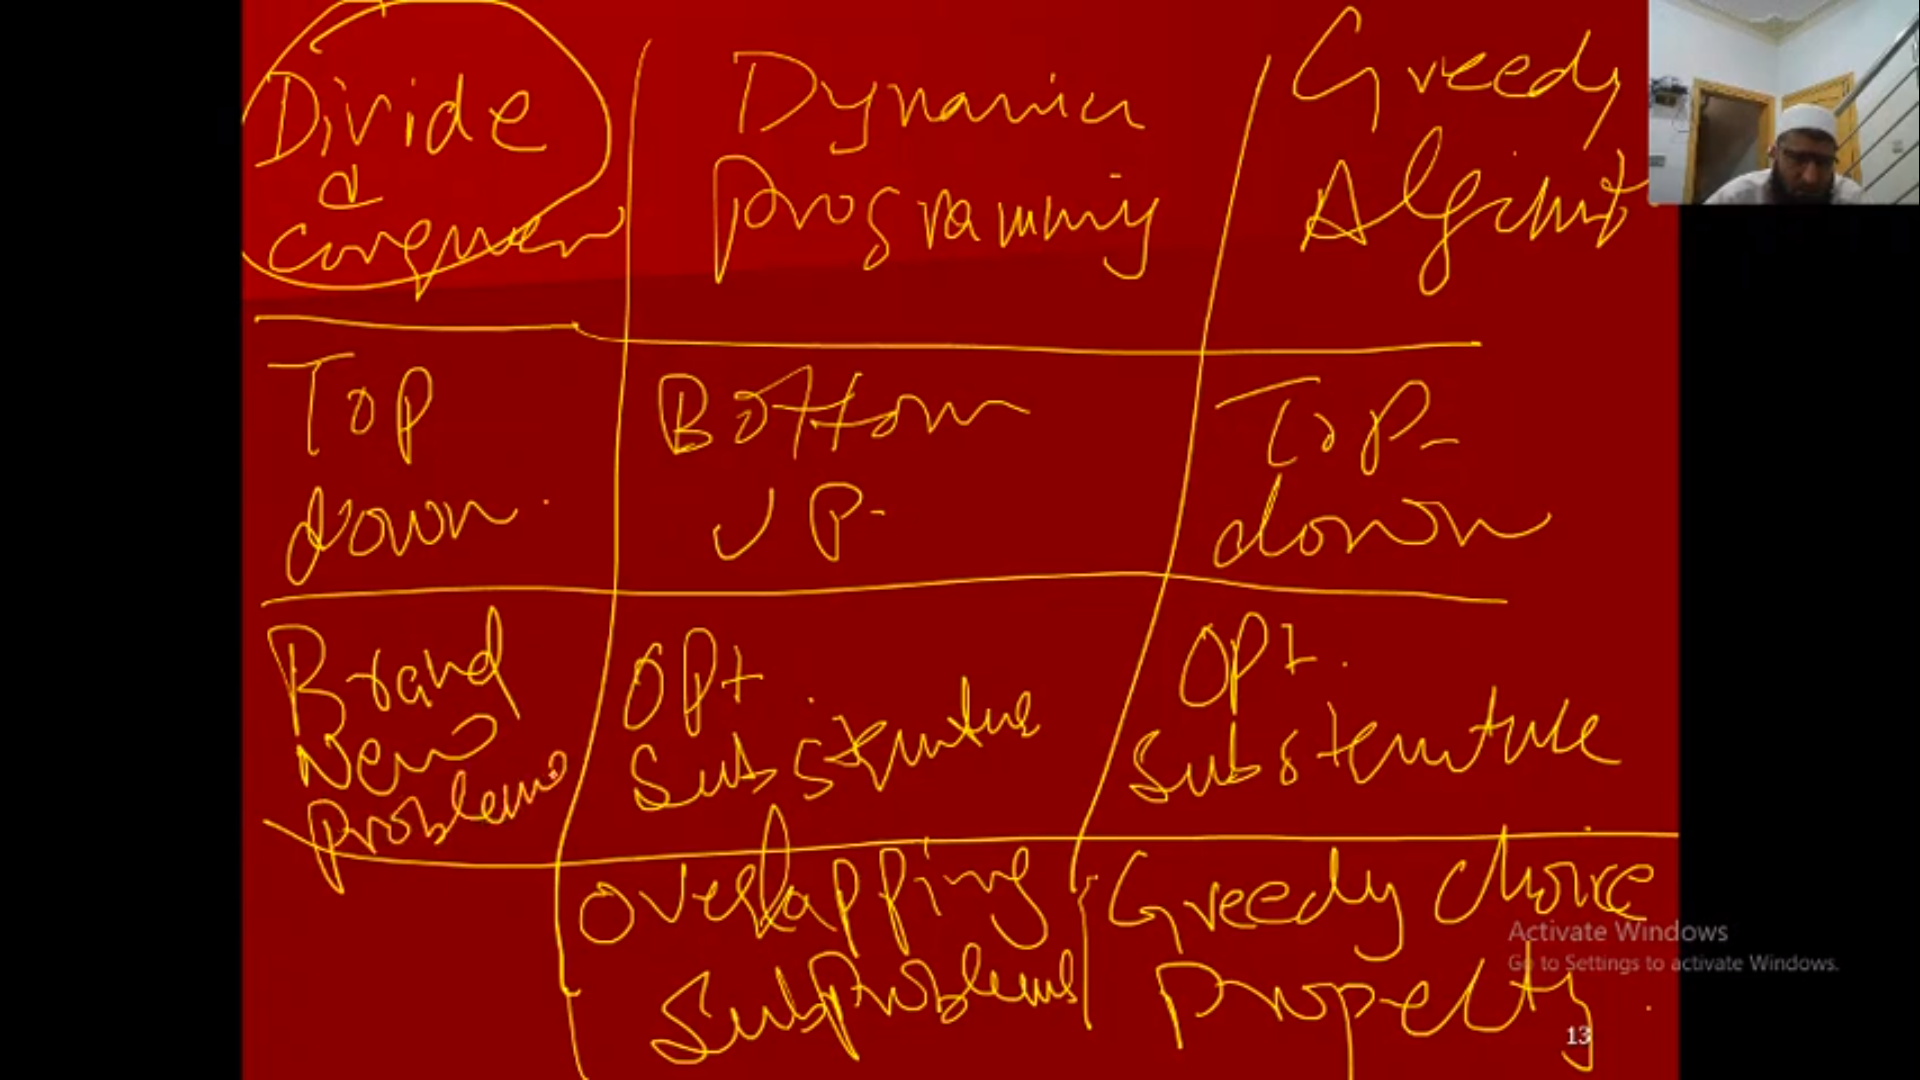 Divide
&
conquer
Dynamic
Programming
Greedy
Algorithm
Top
down.
Bottom
UP-
Top-
down
Brand
New
Problems
Opt
Substructure
Opt.
Substructure
Overlapping
Subproblems
Greedy choice
Property
Activate Windows
Go to Settings to activate Windows.
13